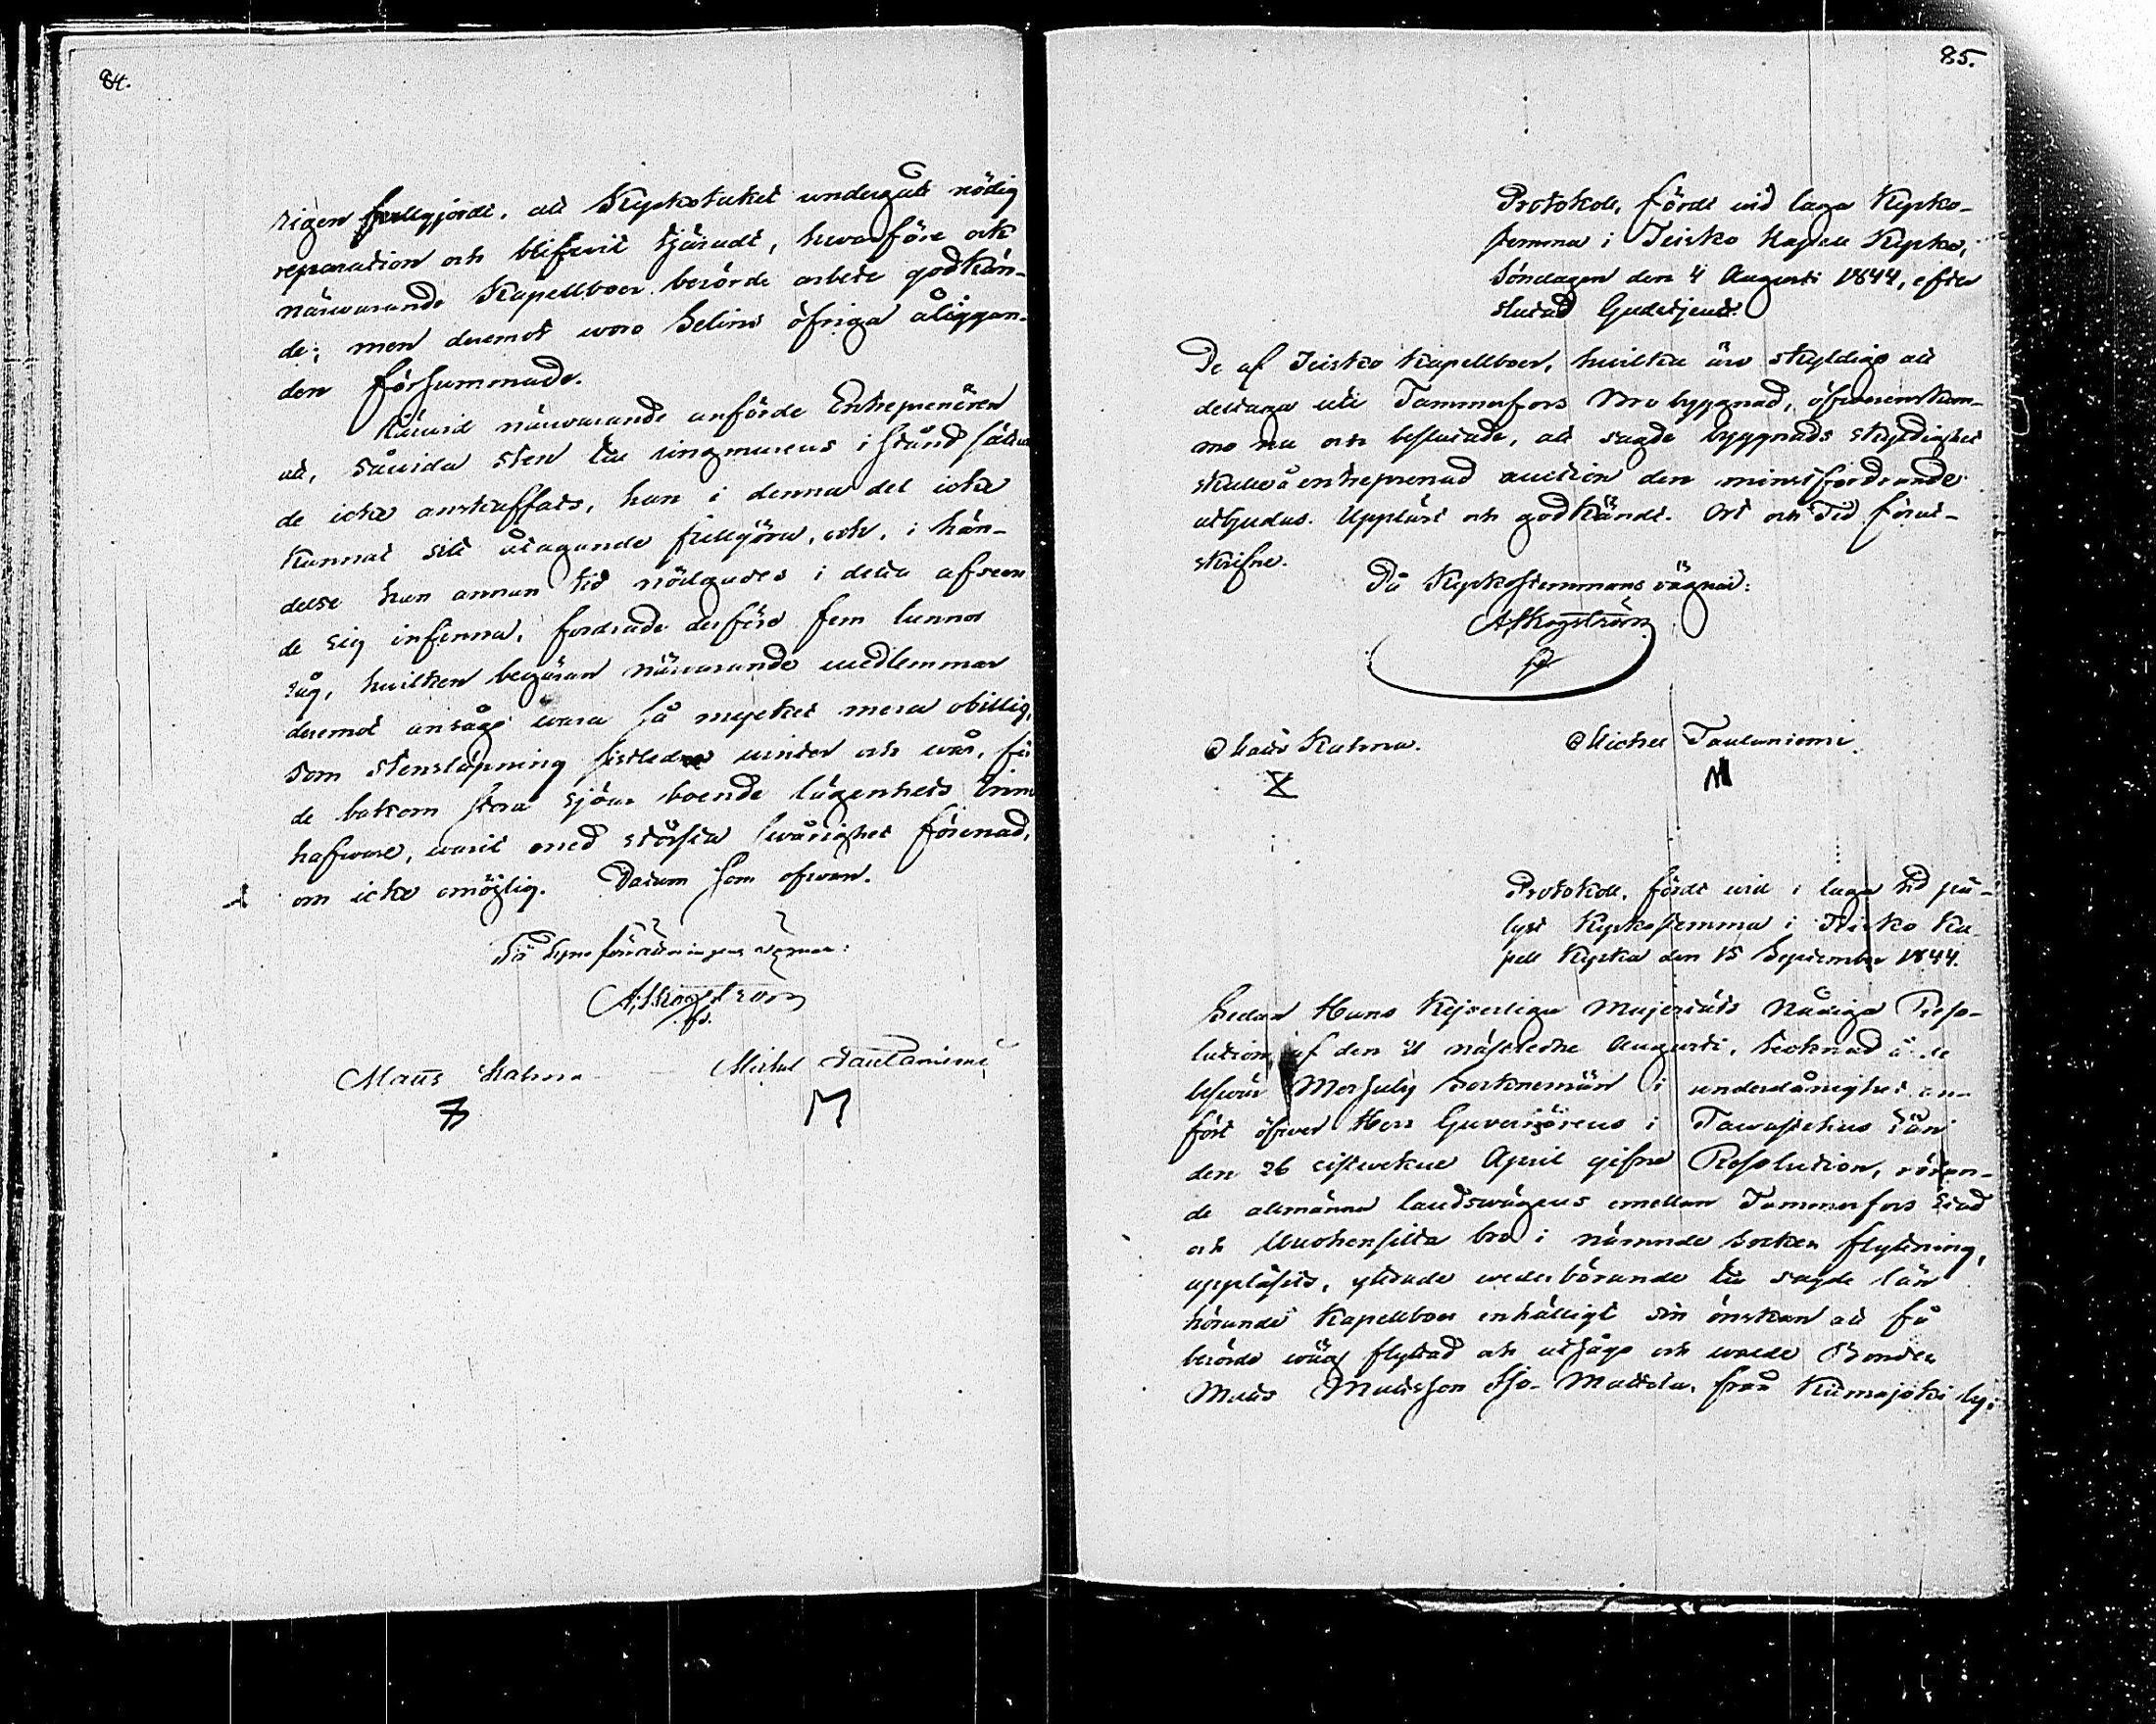 84.
rigen fullgjordt, att Kyrkotaket undergått nödig
reparation och blifwit tjäradt, hwarföre ock
närwarande Kapellboer berörde arbete godkän-
de; men deremot woro Selins öfriga åliggan-
den försummade.
Härwid närwarande anförde Entreprenören
att, såwida sten till ringmurens i stånd sättan-
de icke anskaffats, han i denna del icke
kunnat sitt åtagande fullgöra, och, i hän-
delse han annan tid nödgades i detta afseen
de sig infinna, fordrade derföre fem tunnor
råg, hwilken begäran närwarande medlemmar
deremot ansågo wara så mycket mera obillig,
som stensläpning sistledne winter och wår, för
de bakom stora sjöar boende lägenhets inne
hafware, warit med största swårighet förenad,
om icke omöjlig. Datum som ofwan.
På Syneförrättningens wägnar:
A. Skogström
Matts Kahma Michel Taulaniemi
M
85.
Protokoll, fördt wid laga Kyrko-
stemma i Teisko Kapell Kyrka,
Söndagen den 4 Augusti 1844, efter
slutad Gudstjenst.
De af Teisko Kapellboer, hwilka äro skyldige att
deltaga uti Tammerfors Bro byggnad, öfwerenskom-
mo nu och beslutade, att sagde byggnads skyldighet
skulle å entreprenad auction den minstfordrande
utbjudas. Uppläst och godkändt. Ort och Tid förut-
skrifne.
På Kyrkostemmans wägnar:
A. Skogström
Matts Kahma. Michel Taulaniemi.
X M
Protokoll, fördt wid i laga tid på-
lyst Kyrkostemma i Teisko Ka-
pell Kyrka den 15 September 1844.
Sedan Hans Kejserliga Majestäts Nådiga Reso-
lution, af den 21 nästledne Augusti, tecknad å de
beswär Messuby sockenemän i underdånighet an-
fört öfwer Herr Guvernörens i Tawastehus län
den 26 sistwekne April gifne Resolution, röran-
de allmänna landswägens emellan Tammerfors stad
och Wuohensilta bro i nämnde socken flyttning,
uppläsits, yttrade wederbörande till sagde län
hörande Kapellboer enhälligt sin önskan att få
berörde wäg flyttad och utsågo och walde Bonden
Matts Mattsson Iso-Mattila, från Kiimajoki by,